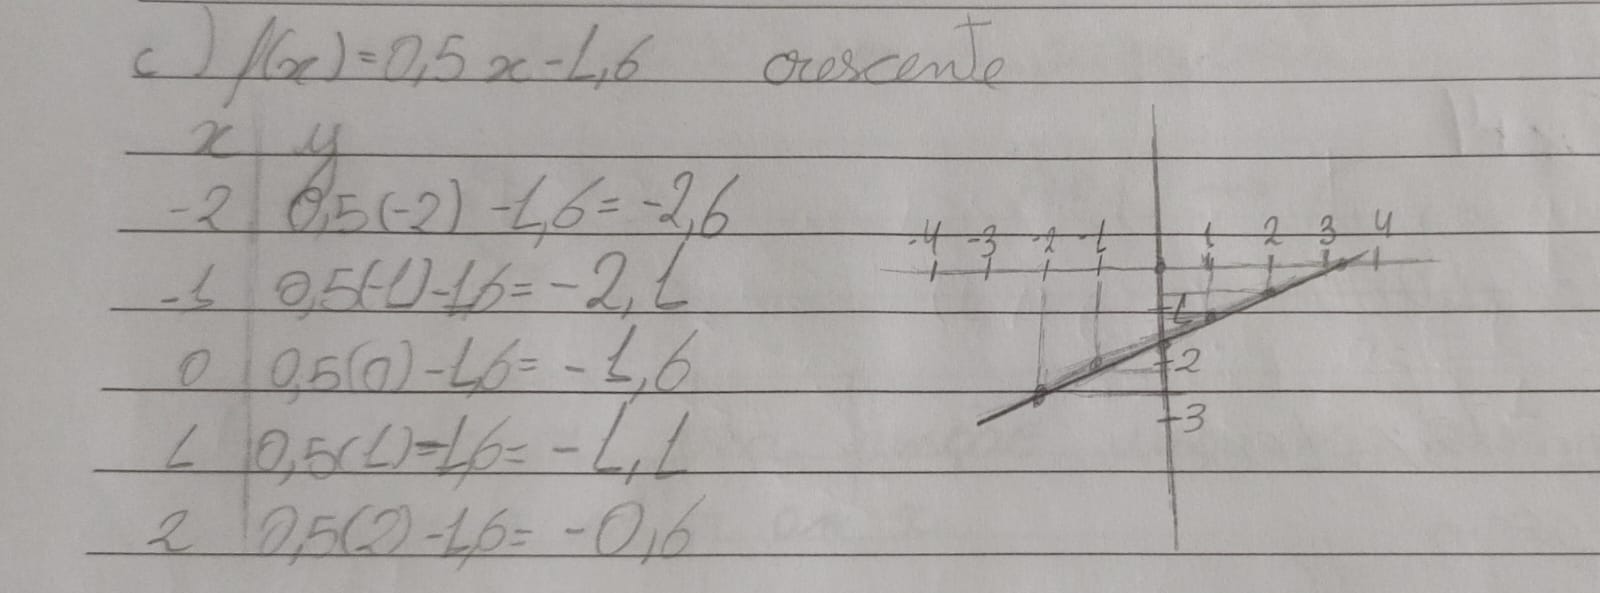 c) f(x)=0,5x-1,6 crescente
x y
-2 0,5(-2)-1,6=-2,6
-1 0,5(-1)-1,6=-2,1
0 0,5(0)-1,6=-1,6
1 0,5(1)-1,6=-1,1
2 0,5(2)-1,6=-0,6
-4 -3 -2 -1 1 2 3 4
-1
-2
-3